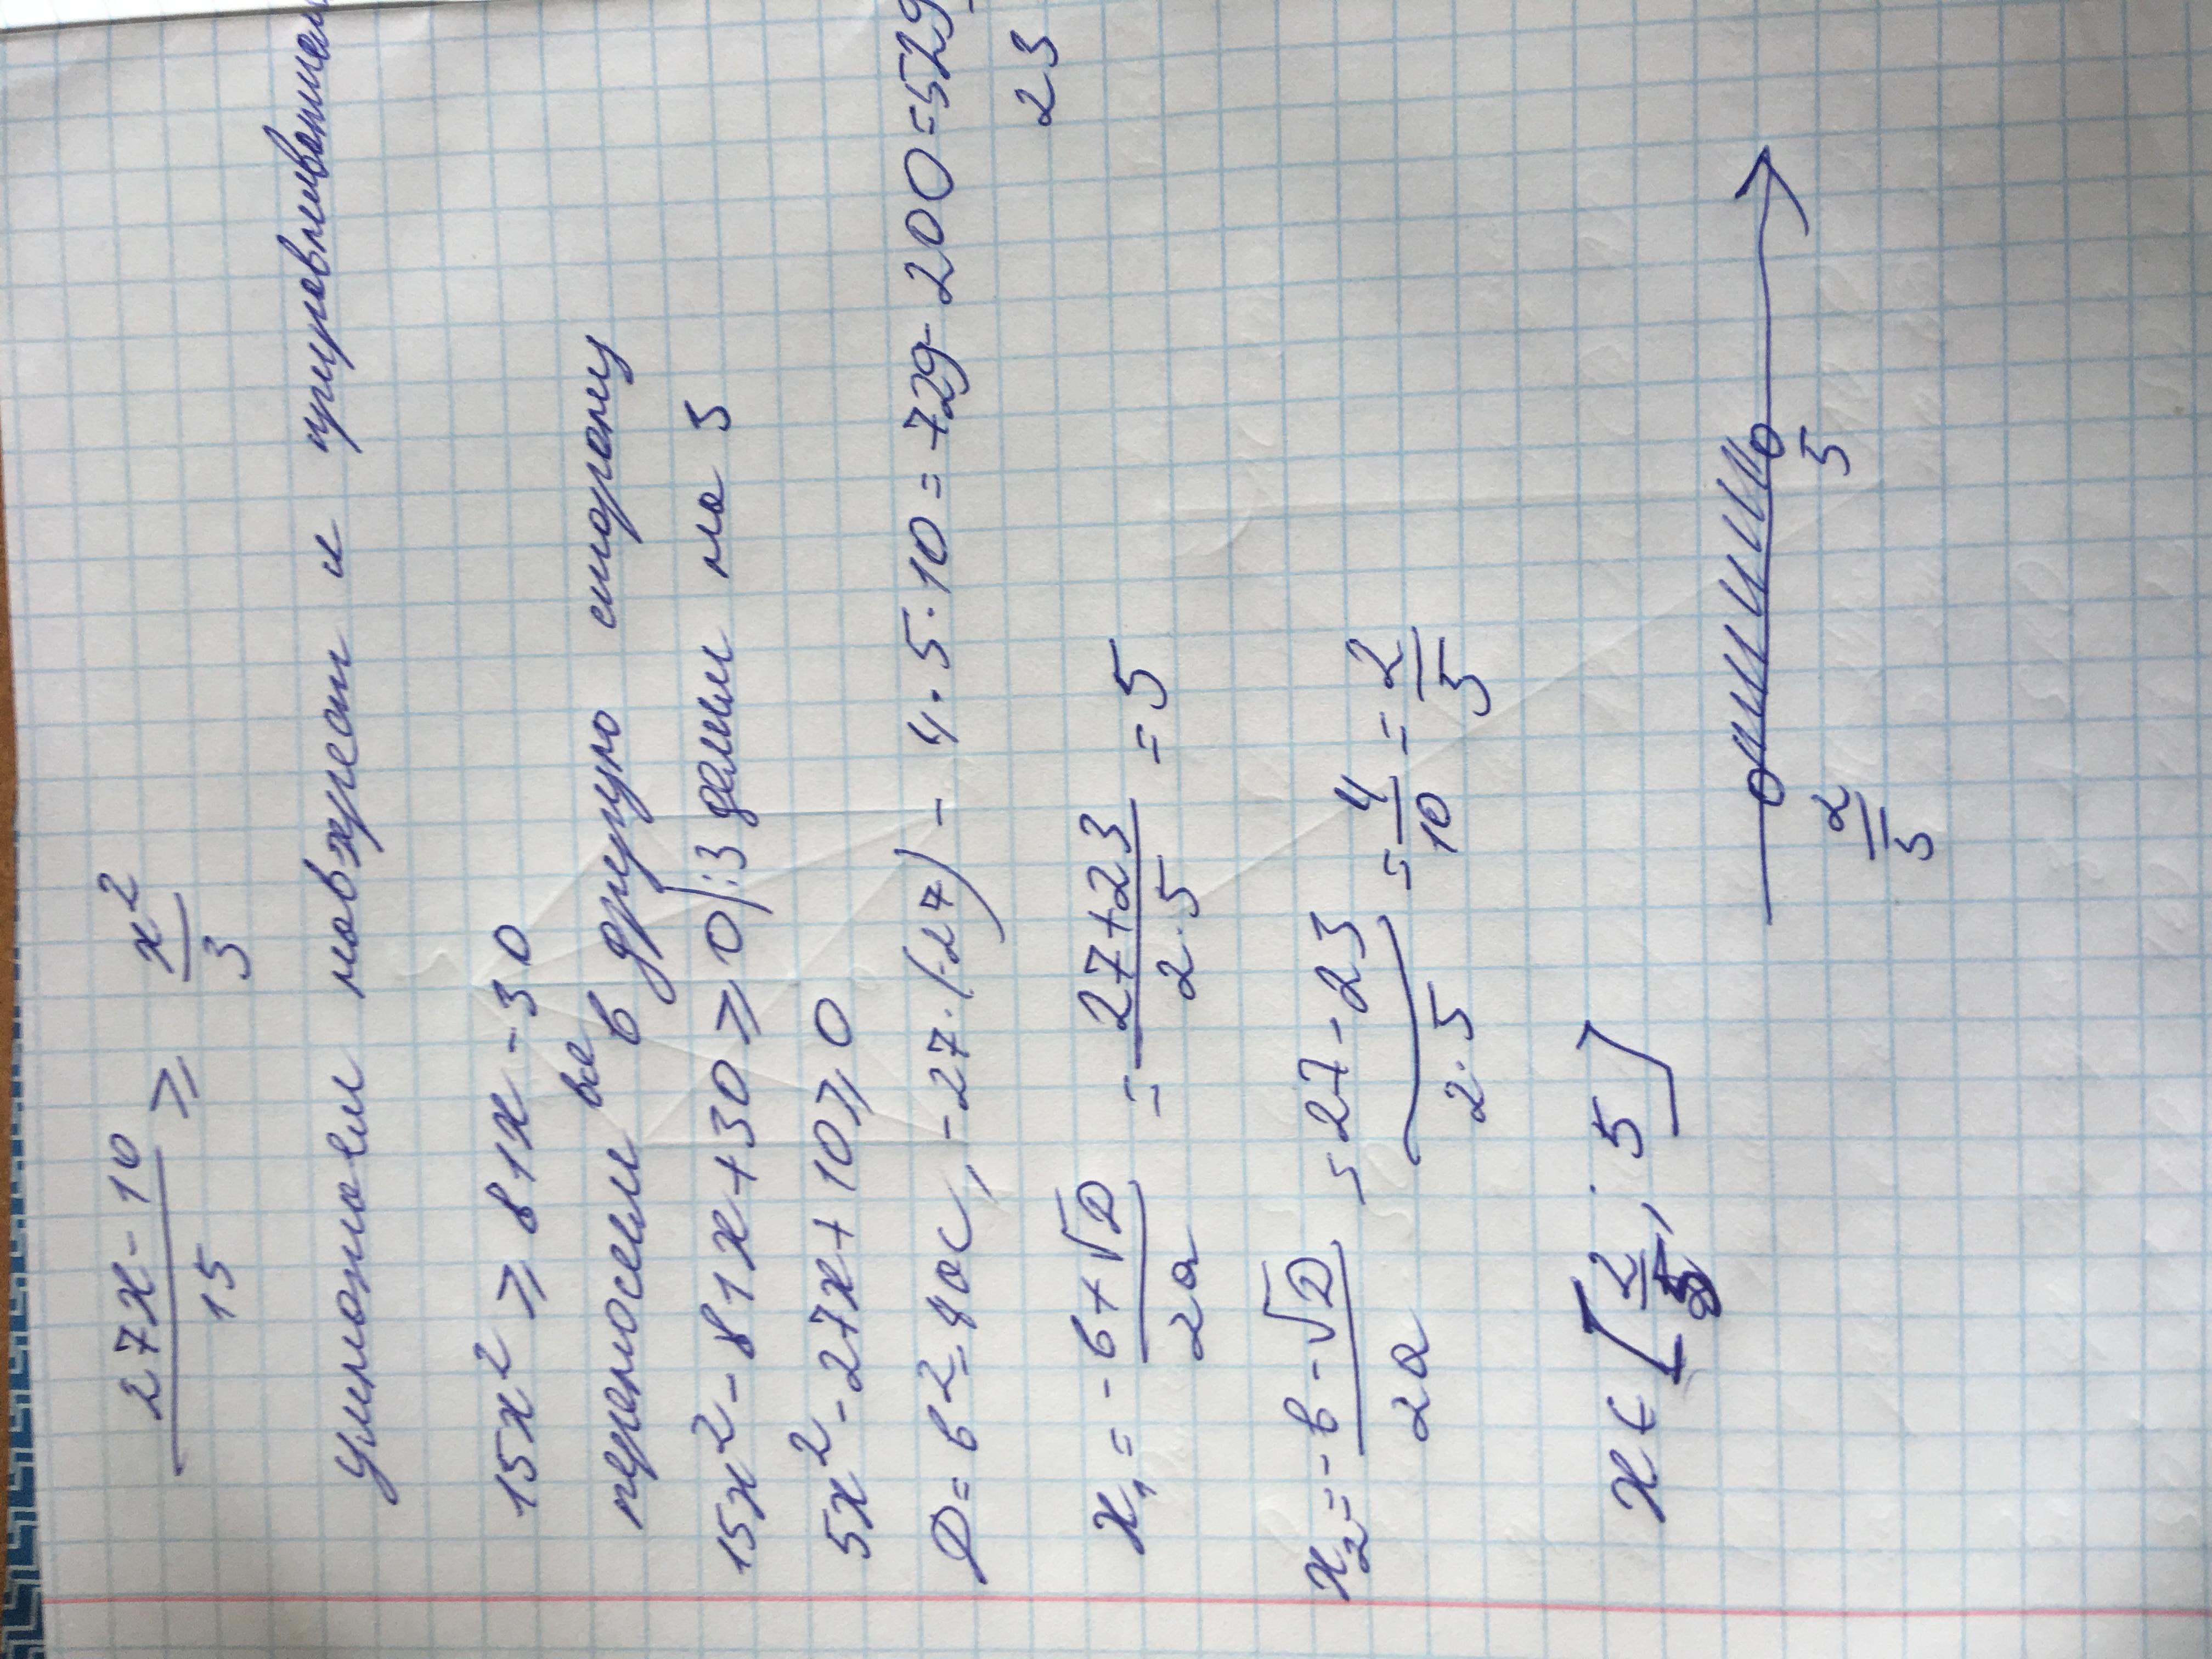 27x-10/15 ⩾ x²/3
Умножаем навхрест и приравниваем
15x² ⩾ 81x - 30
переносим все в другую сторону
15x² - 81x + 30 ⩾ 0 |:3 делим на 3
5x² - 27x + 10 ⩾ 0
D = b² - 4ac, -27·(-27) - 4·5·10 = 729 - 200 = 529
23
x₁ = -b+√D/2a = 27+23/2·5 = 5
x₂ = -b-√D/2a = 27-23/2·5 = 4/10 = 2/5
x ∈ [2/5; 5]
2/5 5